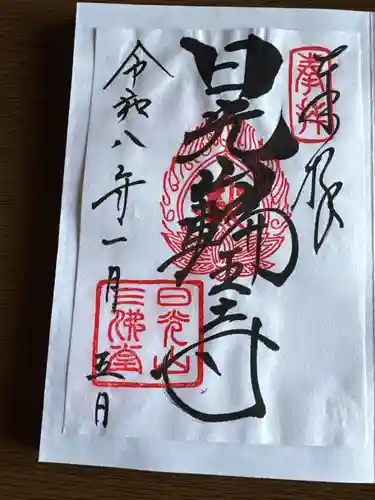 奉拝
日光山輪王寺
日光山
三佛堂
令和八年一月五日